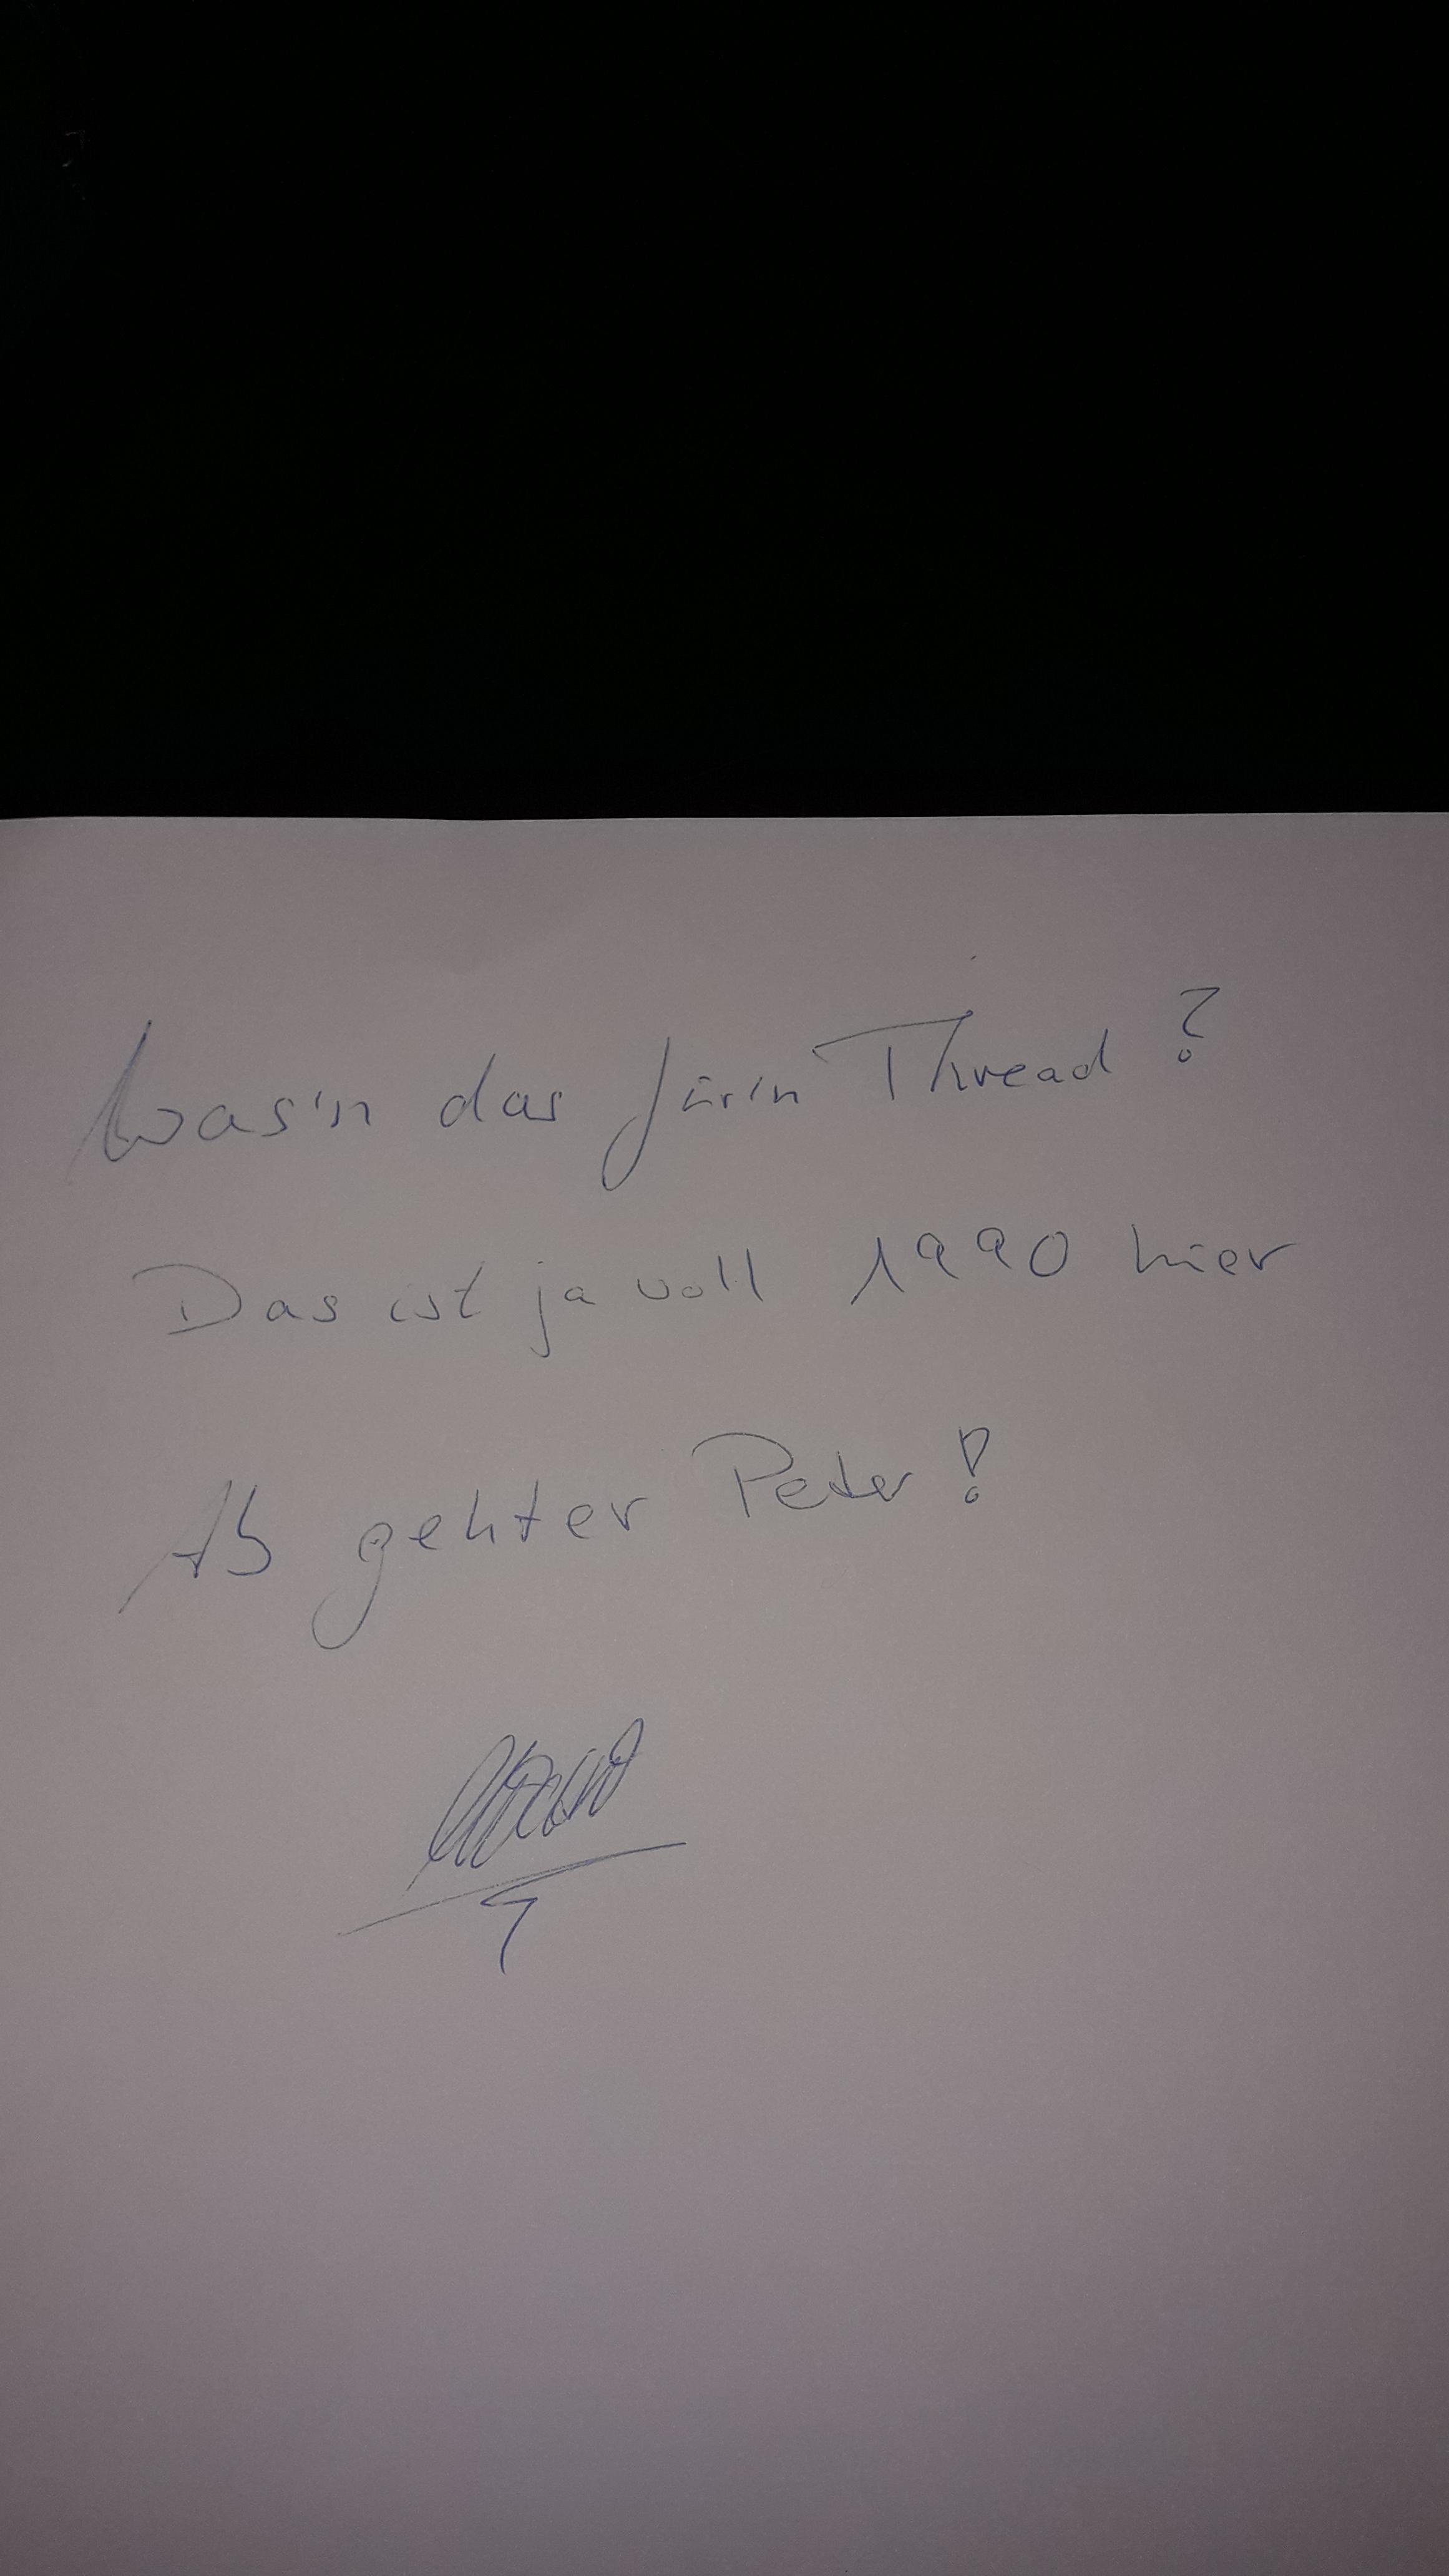 Was'n das für'n Thread?
Das ist ja voll 1990 hier
Ab gehter Peter!